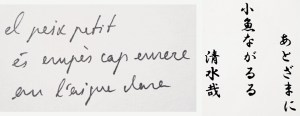 el peix petit
és empès cap enrere
en l'aigua clara
あとざまに
小魚ながるる
清水哉